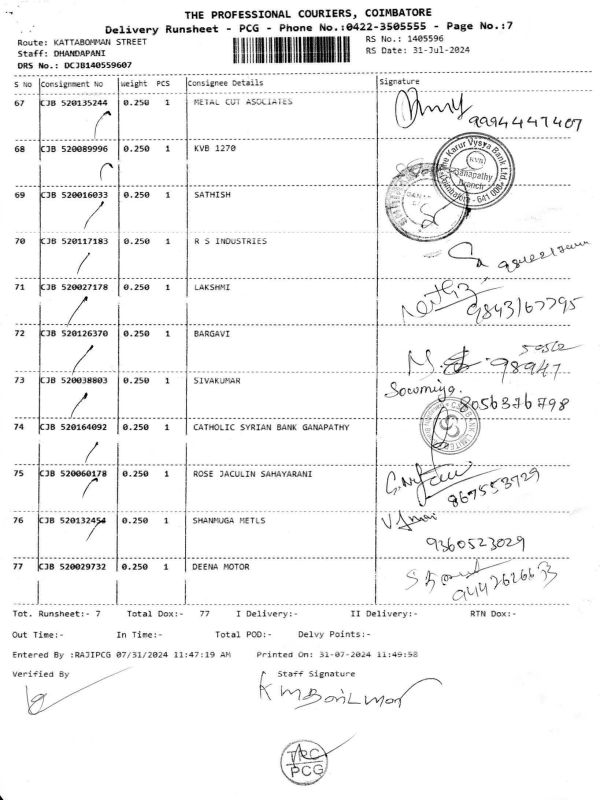 THE PROFESSIONAL COURIERS, COIMBATORE
Delivery Runsheet - PCG - Phone No.:0422-3505555 - Page No.:7
Route: KATTABOMMAN STREET
RS No.: 1405596
Staff: DHANDAPANI
RS Date: 31-Jul-2024
DRS No.: DCJB140559607
S No Consignment No Weight PCS Consignee Details Signature
67 CJB 520135244 0.250 1 METAL CUT ASOCIATES
9994447407
68 CJB 520089996 0.250 1 KVB 1270
The Karur Vysya Bank Ltd.
KVB
Ganapathy
Branch
Coimbatore - 641 006
69 CJB 520016033 0.250 1 SATHISH
70 CJB 520117183 0.250 1 R S INDUSTRIES
71 CJB 520027178 0.250 1 LAKSHMI
9843167795
72 CJB 520126370 0.250 1 BARGAVI
98947
73 CJB 520038803 0.250 1 SIVAKUMAR
Sowmiya.
8056376798
74 CJB 520164092 0.250 1 CATHOLIC SYRIAN BANK GANAPATHY
75 CJB 520060178 0.250 1 ROSE JACULIN SAHAYARANI
8675553729
76 CJB 520132454 0.250 1 SHANMUGA METLS
9360523029
77 CJB 520029732 0.250 1 DEENA MOTOR
9442626633
Tot. Runsheet:- 7 Total Dox:- 77 I Delivery:- II Delivery:- RTN Dox:-
Out Time:- In Time:- Total POD:- Delvy Points:-
Entered By :RAJIPCG 07/31/2024 11:47:19 AM Printed On: 31-07-2024 11:49:58
Verified By Staff Signature
PCG